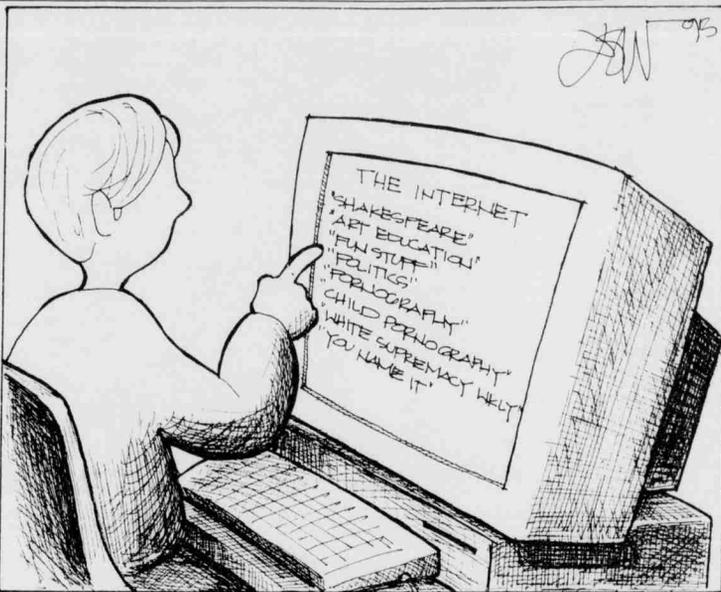 '95
THE INTERNET
"SHAKESPEARE"
"ART EDUCATION"
"FUN STUFF"
"POLITICS"
"PORNOGRAPHY"
"CHILD PORNOGRAPHY"
"WHITE SUPREMACY WKLY"
"YOU NAME IT"